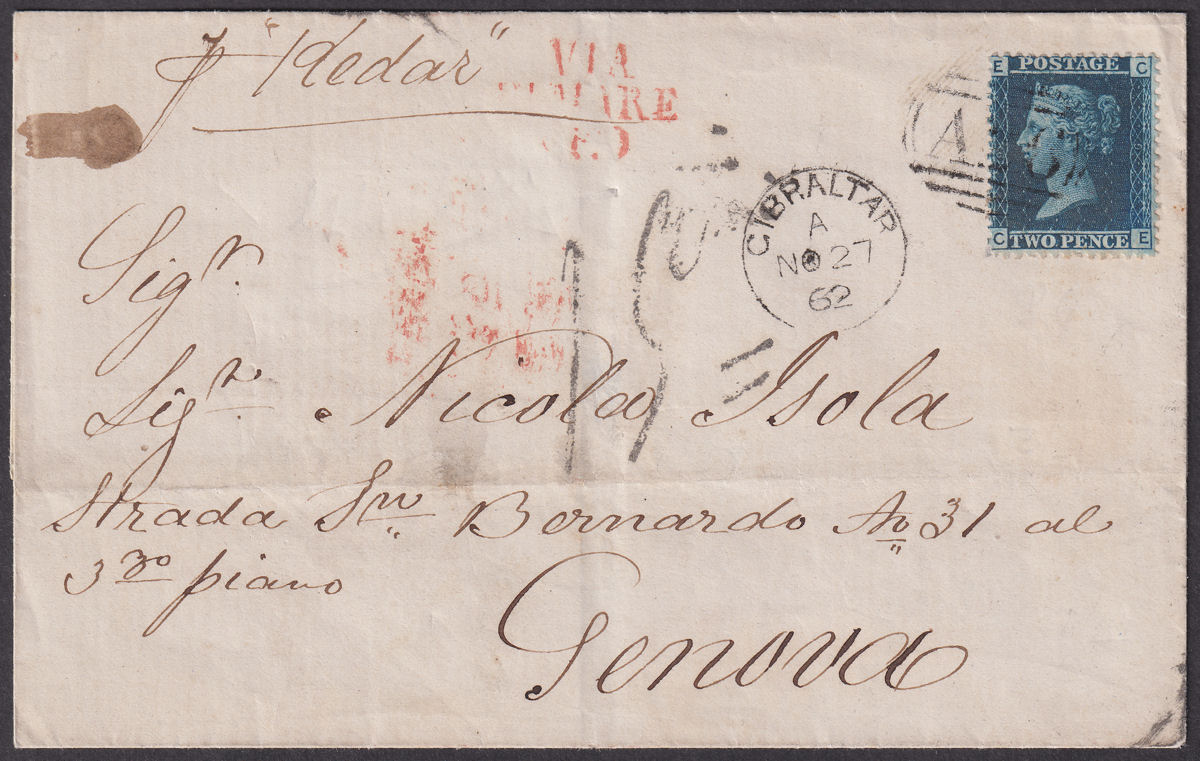 p "Kedar"
VIA
E C
POSTAGE
TWO PENCE
C E
GIBRALTAR
A
NO 27
62
15
Sigr
Sigr Nicola Isola
Strada Sn Bernardo No 31 al
3zo piano
Genova